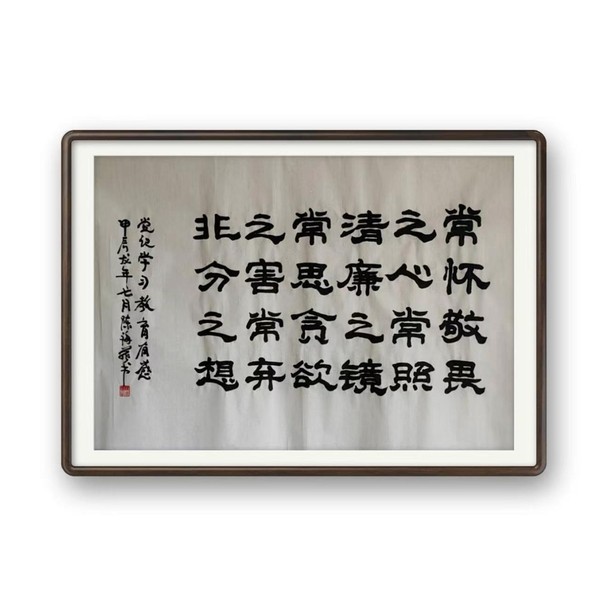 常怀敬畏
之心常照
清廉之镜
常思贪欲
之害常弃
非分之想
党纪学习教育有感
甲辰龙年七月陈海